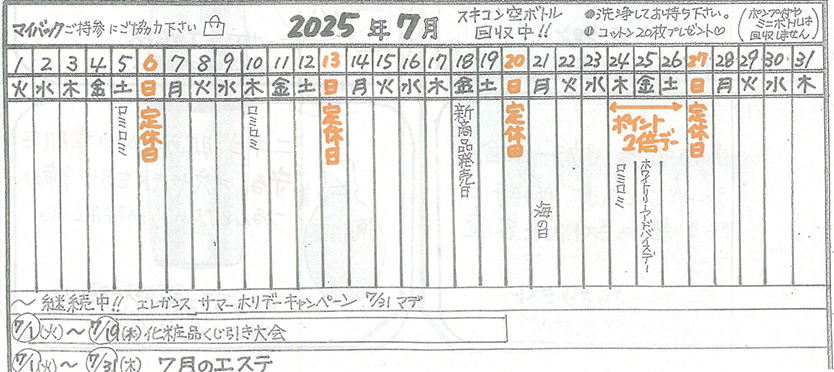 マイバックご持参にご協力下さい
2025年7月
スキコン空ボトル
回収中!!
●洗浄してお持ち下さい。
●コットン20枚プレゼント♡
(ポンプ付や
ミニボトルは
回収しません)
1 2 3 4 5 6 7 8 9 10 11 12 13 14 15 16 17 18 19 20 21 22 23 24 25 26 27 28 29 30 31
火 水 木 金 土 日 月 火 水 木 金 土 日 月 火 水 木 金 土 日 月 火 水 木 金 土 日 月 火 水 木
ロミロミ
定休日
ロミロミ
定休日
新商品発売日
定休日
海の日
ポイント
2倍デー
ロミロミ
ホワイトリリーアドバイスデー
定休日
〜継続中!! エレガンス サマーホリデーキャンペーン 7/31マデ
7/1(火)〜7/19(木)化粧品くじ引き大会
7/1(火)〜7/31(木) 7月のエステ